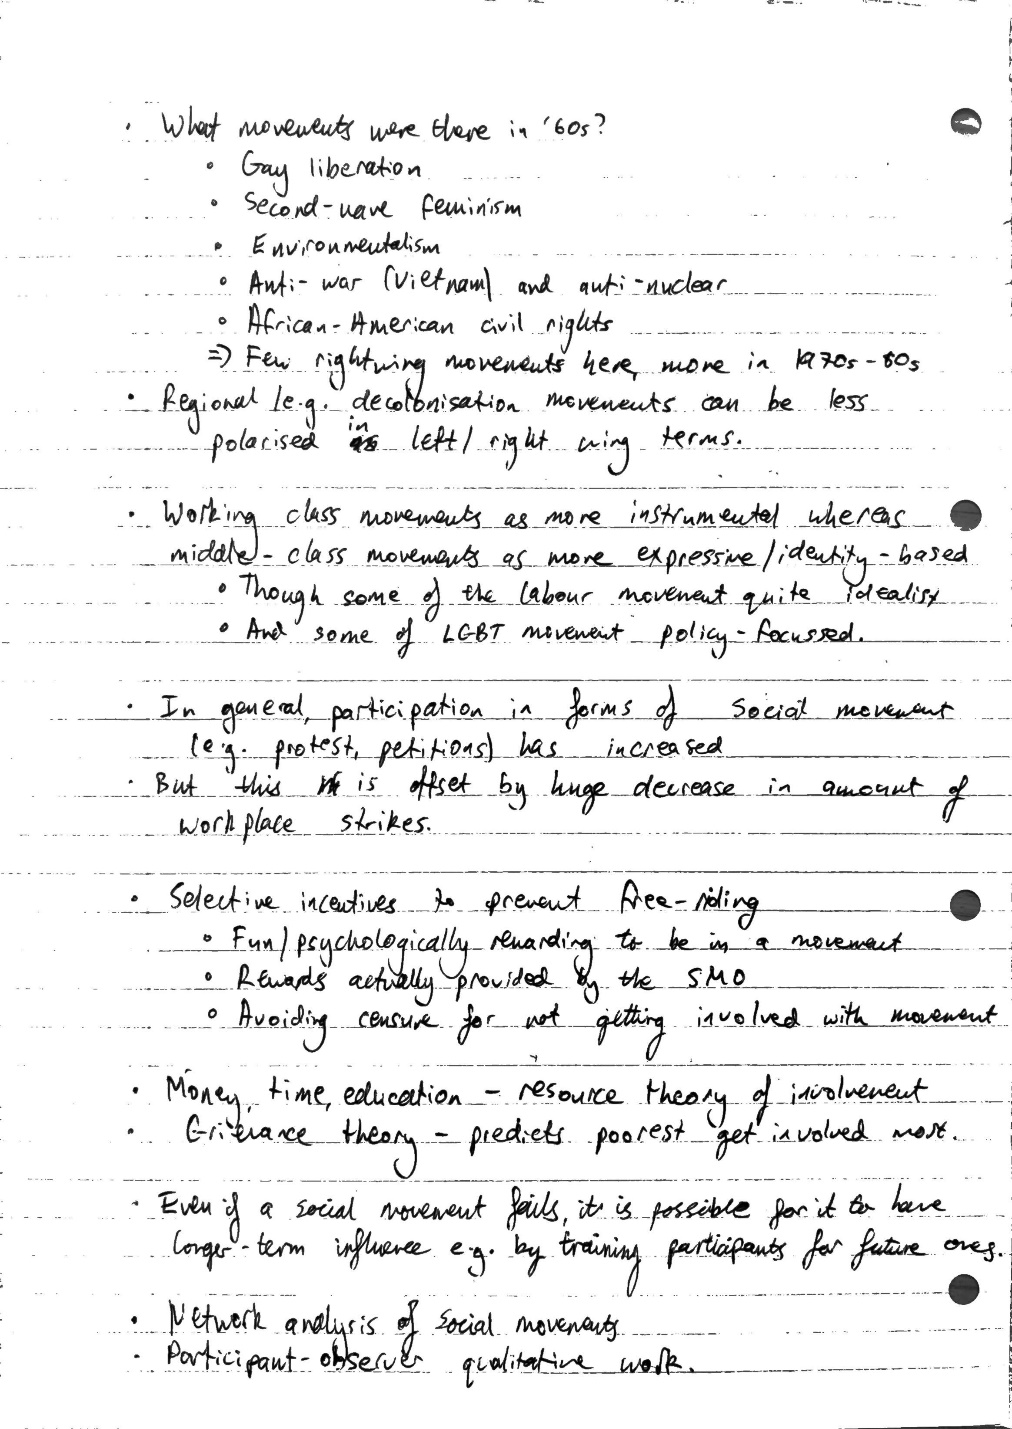 · What movements were there in '60s?
• Gay liberation
• Second-wave feminism
• Environmentalism
• Anti-war (Vietnam) and anti-nuclear
• African-American civil rights
⇒ Few rightwing movements here, more in 1970s-80s
· Regional (e.g. decolonisation movements can be less
polarised in left/right wing terms.
· Working class movements as more instrumental whereas
middle-class movements as more expressive/identity-based
• Though some of the labour movement quite idealist
• And some of LGBT movement policy-focussed.
· In general, participation in forms of social movement
(e.g. protest, petitions) has increased
· But this is offset by huge decrease in amount of
workplace strikes.
· Selective incentives to prevent free-riding
• Fun/psychologically rewarding to be in a movement
• Rewards actually provided by the SMO
• Avoiding censure for not getting involved with movement
· Money, time, education – resource theory of involvement
· Grievance theory – predicts poorest get involved most.
· Even if a social movement fails, it is possible for it to have
longer-term influence e.g. by training participants for future ones.
· Network analysis of social movements
· Participant-observer qualitative work.